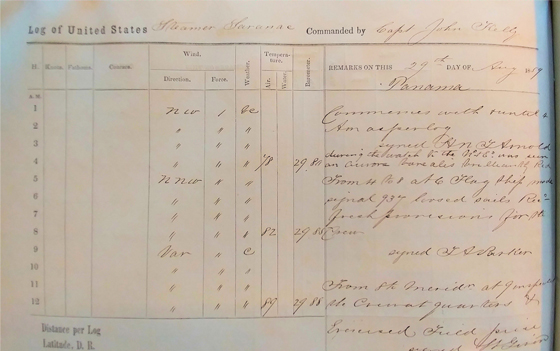 Log of United States Steamer Saranac Commanded by Capt John Kelly
REMARKS ON THIS 29th DAY OF, Aug 1859
Panama
H. Knots. Fathoms. Courses. Wind. Weather. Tempera-ture. Barometer.
Direction. Force. Air. Water.
A.M.
1 NW 1 bc Commences with
2 " " " Am as per log
3 " " " signed H N T Arnold
during the watch to the was seen
4 " " " 78 29.84 an Aurora borealis brilliantly Red
5 N NW " " From 4 to 8 at 6 Flag Ship made
6 " " " signal 937 loosed sails Recd
7 " " " fresh provisions for the
8 " " " 82 29.85 Crew
9 Var " c signed T A Parker
10 " "
11 " " " From 8 to Merid at
12 " " 89 29.88 the Crew at quarters &
Exercised Field
Distance per Log
Latitude, D. R. signed